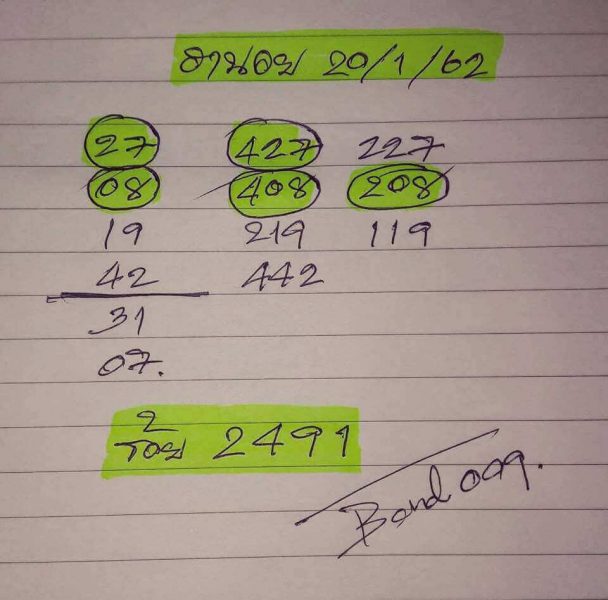 ฮานอย 20/1/62
27 427 227
08 408 208
19 219 119
42 442
31
07.
2
ร้อย 2491
Band 099.